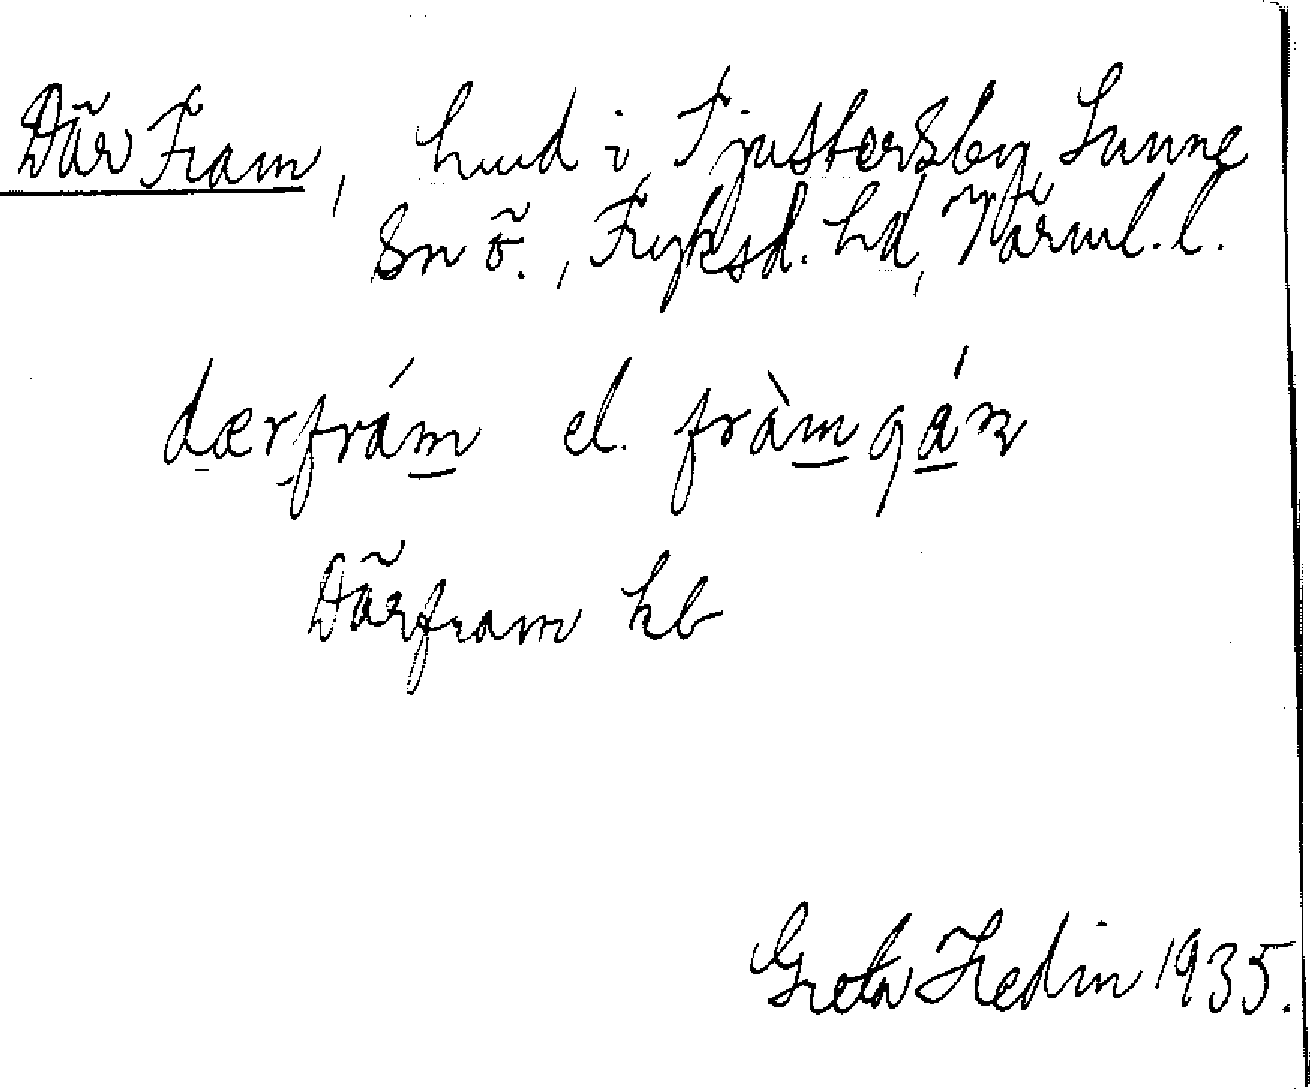 Där Fram, hmd i Tjustersby, Sunne
Sn ö., Fryksd. hd, Värml. l.
dærfrám el. fràmgáɳ
Därfram kb
Greta Hedin 1935.